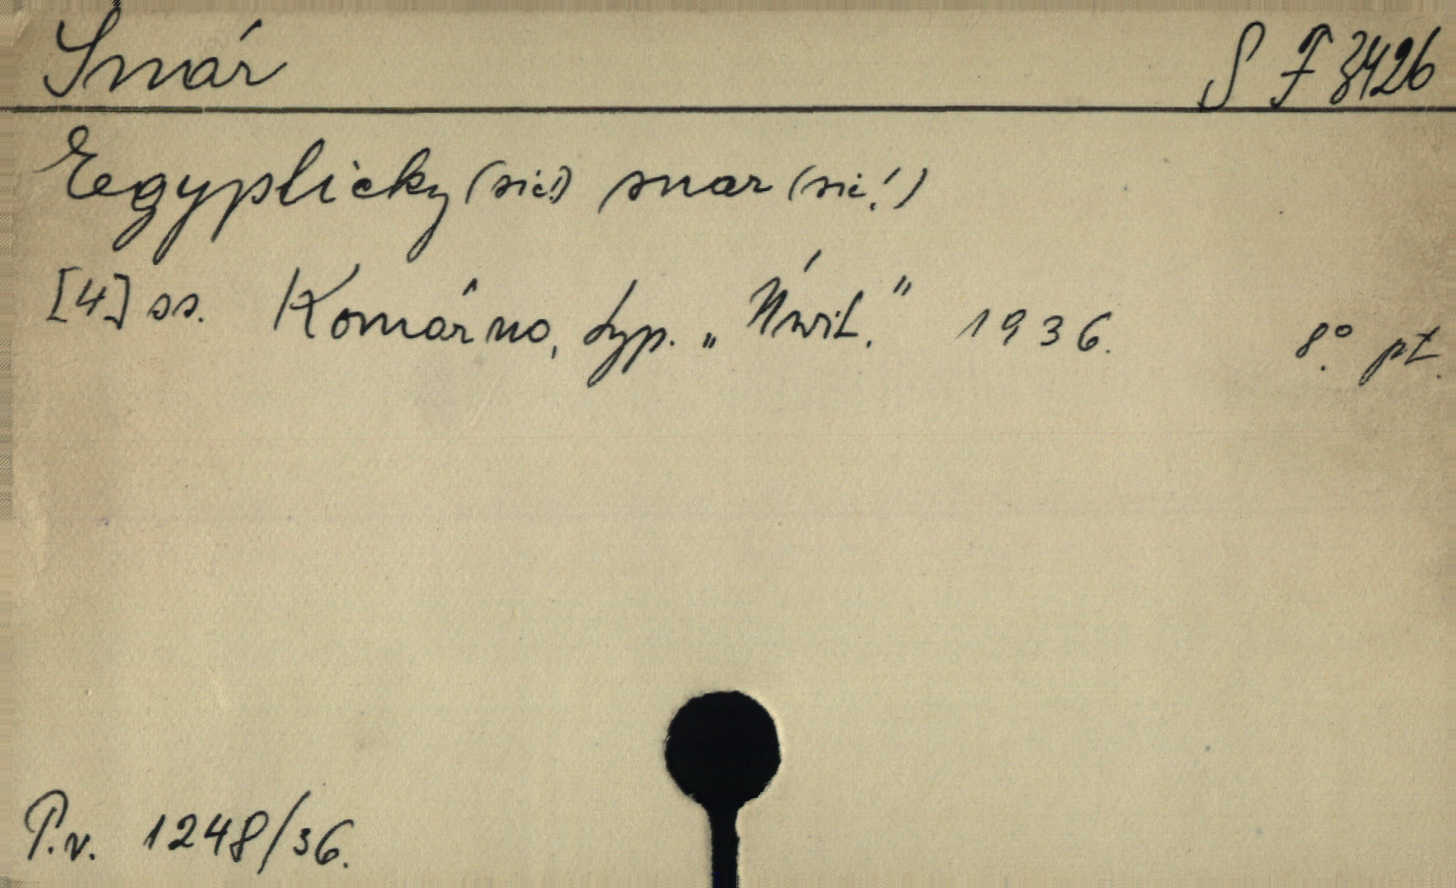 Snár S F 3426
Eegyplicky (sic!) snar (sic!)
[4] ss. Komárno, typ. „Úwit." 1936. 8.° pt.
P.v. 1248/36.